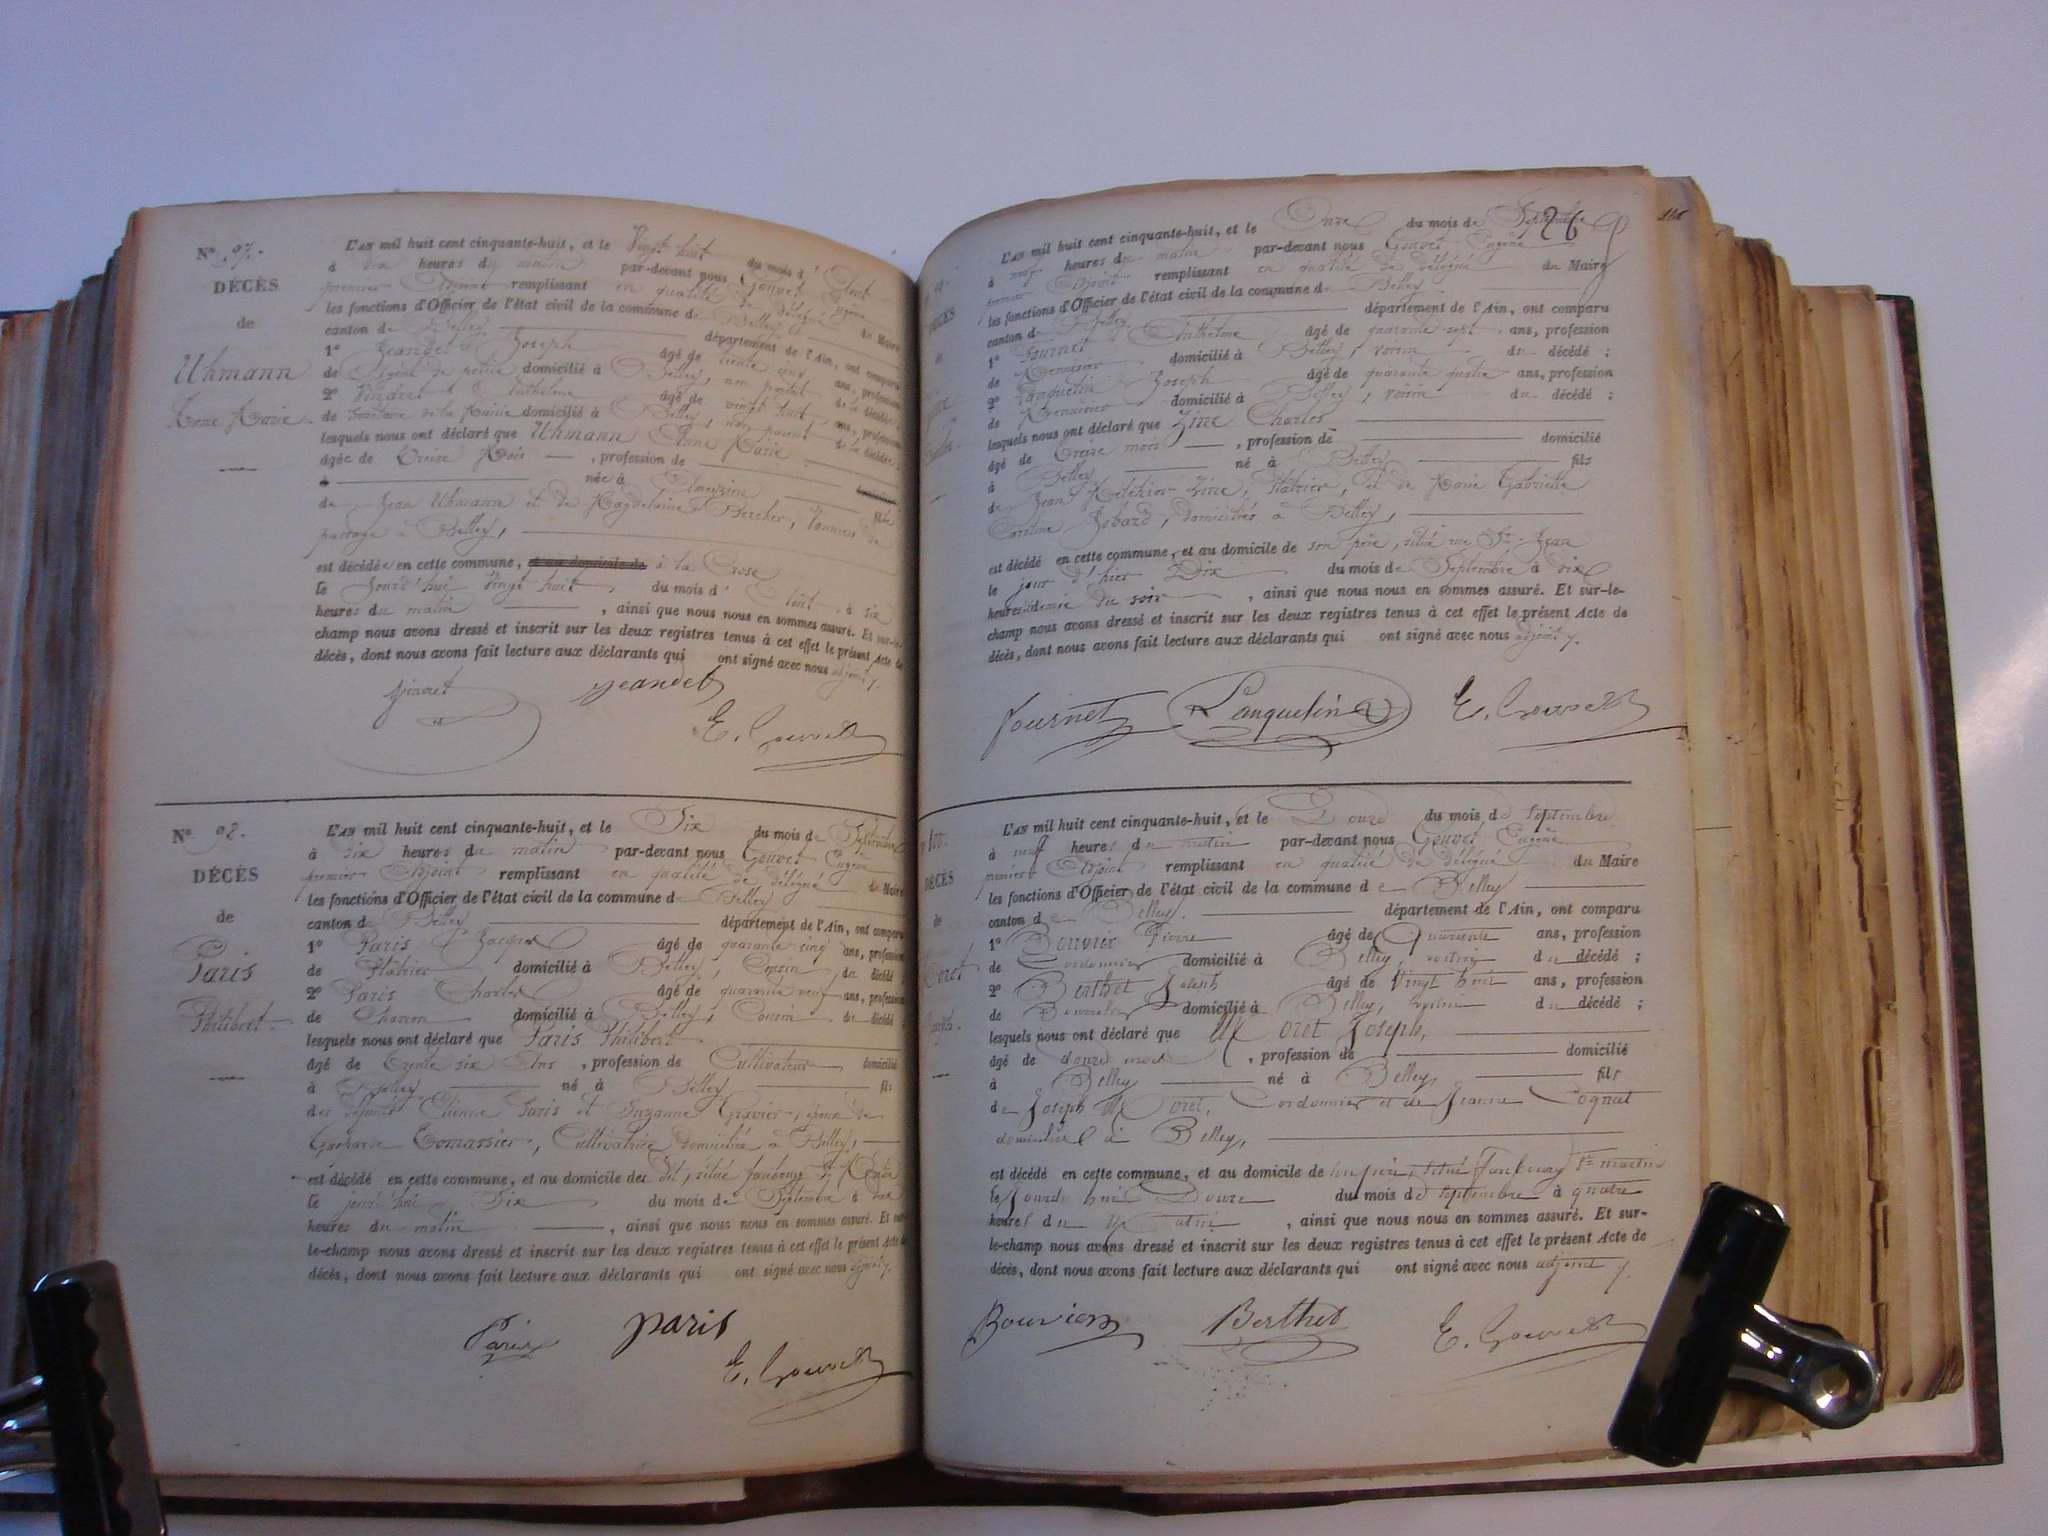 N.º 97.
DÉCÈS
de
Uhmann
Anne Marie
L'AN mil huit cent cinquante-huit, et le Vingt huit du mois d' Août
à dix heures du matin par-devant nous Gouvet Eugène
premier Adjoint remplissant en qualité de délégué du Maire
les fonctions d'Officier de l'état civil de la commune de Belley
canton de Belley département de l'Ain, ont comparu
1º Jeandet Joseph âgé de trente ans, profession
de Agent de police domicilié à Belley, non parent de la décédée;
2º Vindret Anthelme âgé de vingt huit ans, profession
de Secrétaire de la Mairie domicilié à Belley, non parent de la décédée;
lesquels nous ont déclaré que Uhmann Anne Marie
âgée de treize Mois, profession de
à née à fille
de Jean Uhmann et de Magdelaine Bercher, Vanniers de
passage à Belley,
est décédée en cette commune, et au domicile de à la Crose
le Jourd'hui Vingt huit du mois d' Août à six
heures du matin, ainsi que nous nous en sommes assuré. Et sur-le-
champ nous avons dressé et inscrit sur les deux registres tenus à cet effet le présent Acte de
décès, dont nous avons fait lecture aux déclarants qui ont signé avec nous adjoint
Jeandet
E. Gouvet
N.º 98.
DÉCÈS
de
Paris
Philibert
L'AN mil huit cent cinquante-huit, et le Six du mois de Septembre
à dix heures du matin par-devant nous Gouvet Eugène
premier Adjoint remplissant en qualité de délégué du Maire
les fonctions d'Officier de l'état civil de la commune de Belley
canton de Belley département de l'Ain, ont comparu
1º Paris Jacques âgé de quarante cinq ans, profession
de Plâtrier domicilié à Belley, Cousin du décédé;
2º Paris Charles âgé de quarante neuf ans, profession
de Charron domicilié à Belley, Cousin du décédé;
lesquels nous ont déclaré que Paris Philibert
âgé de trente six Ans, profession de Cultivateur domicilié
à Belley né à Belley fils
des défunts Etienne Paris et Suzanne Gravier, époux de
Tomassier, Cultivatrice domiciliée à Belley,
est décédé en cette commune, et au domicile de dit, situé faubourg
le jourd'hui Six du mois de Septembre à
heures du matin, ainsi que nous nous en sommes assuré. Et sur-
le-champ nous avons dressé et inscrit sur les deux registres tenus à cet effet le présent Acte de
décès, dont nous avons fait lecture aux déclarants qui ont signé avec nous adjoint
Paris paris
E. Gouvet
26
L'AN mil huit cent cinquante-huit, et le Onze du mois de Septembre
à neuf heures du matin par-devant nous Gouvet Eugène
premier Adjoint remplissant en qualité de délégué du Maire
les fonctions d'Officier de l'état civil de la commune de Belley
canton de Belley département de l'Ain, ont comparu
1º Fournet Anthelme âgé de quarante sept ans, profession
de Menuisier domicilié à Belley, voisin du décédé;
2º Lanquetin Joseph âgé de quarante quatre ans, profession
de Menuisier domicilié à Belley, voisin du décédé;
lesquels nous ont déclaré que Zine Charles
âgé de treize mois, profession de domicilié
à Belley né à Belley fils
de Jean Melchior Zine, Plâtrier, et de Marie Gabrielle
Caroline Jobard, domiciliés à Belley,
est décédé en cette commune, et au domicile de son père, situé rue St Jean
le jour d'hier Dix du mois de Septembre à dix
heures demie du soir, ainsi que nous nous en sommes assuré. Et sur-le-
champ nous avons dressé et inscrit sur les deux registres tenus à cet effet le présent Acte de
décès, dont nous avons fait lecture aux déclarants qui ont signé avec nous adjoint
fournet Lanquetin E. Gouvet
100
DÉCÈS
de
L'AN mil huit cent cinquante-huit, et le Douze du mois de septembre
à neuf heures du matin par-devant nous Gouvet Eugène
premier Adjoint remplissant en qualité de délégué du Maire
les fonctions d'Officier de l'état civil de la commune de Belley
canton de Belley département de l'Ain, ont comparu
1º Bouvier Pierre âgé de Quarante ans, profession
de Cordonnier domicilié à Belley, voisin du décédé;
2º Berthet Joseph âgé de Vingt huit ans, profession
de domicilié à Belley, voisin du décédé;
lesquels nous ont déclaré que Moret Joseph,
âgé de douze mois, profession de domicilié
à Belley né à Belley, fils
de Joseph Moret, Cordonnier et de Jeanne Cognat
domiciliés à Belley,
est décédé en cette commune, et au domicile de son père, situé Faubourg St martin
le Jourd'hui Douze du mois de septembre à quatre
heures du Matin, ainsi que nous nous en sommes assuré. Et sur-
le-champ nous avons dressé et inscrit sur les deux registres tenus à cet effet le présent Acte de
décès, dont nous avons fait lecture aux déclarants qui ont signé avec nous adjoint
Bouvier Berthet E. Gouvet